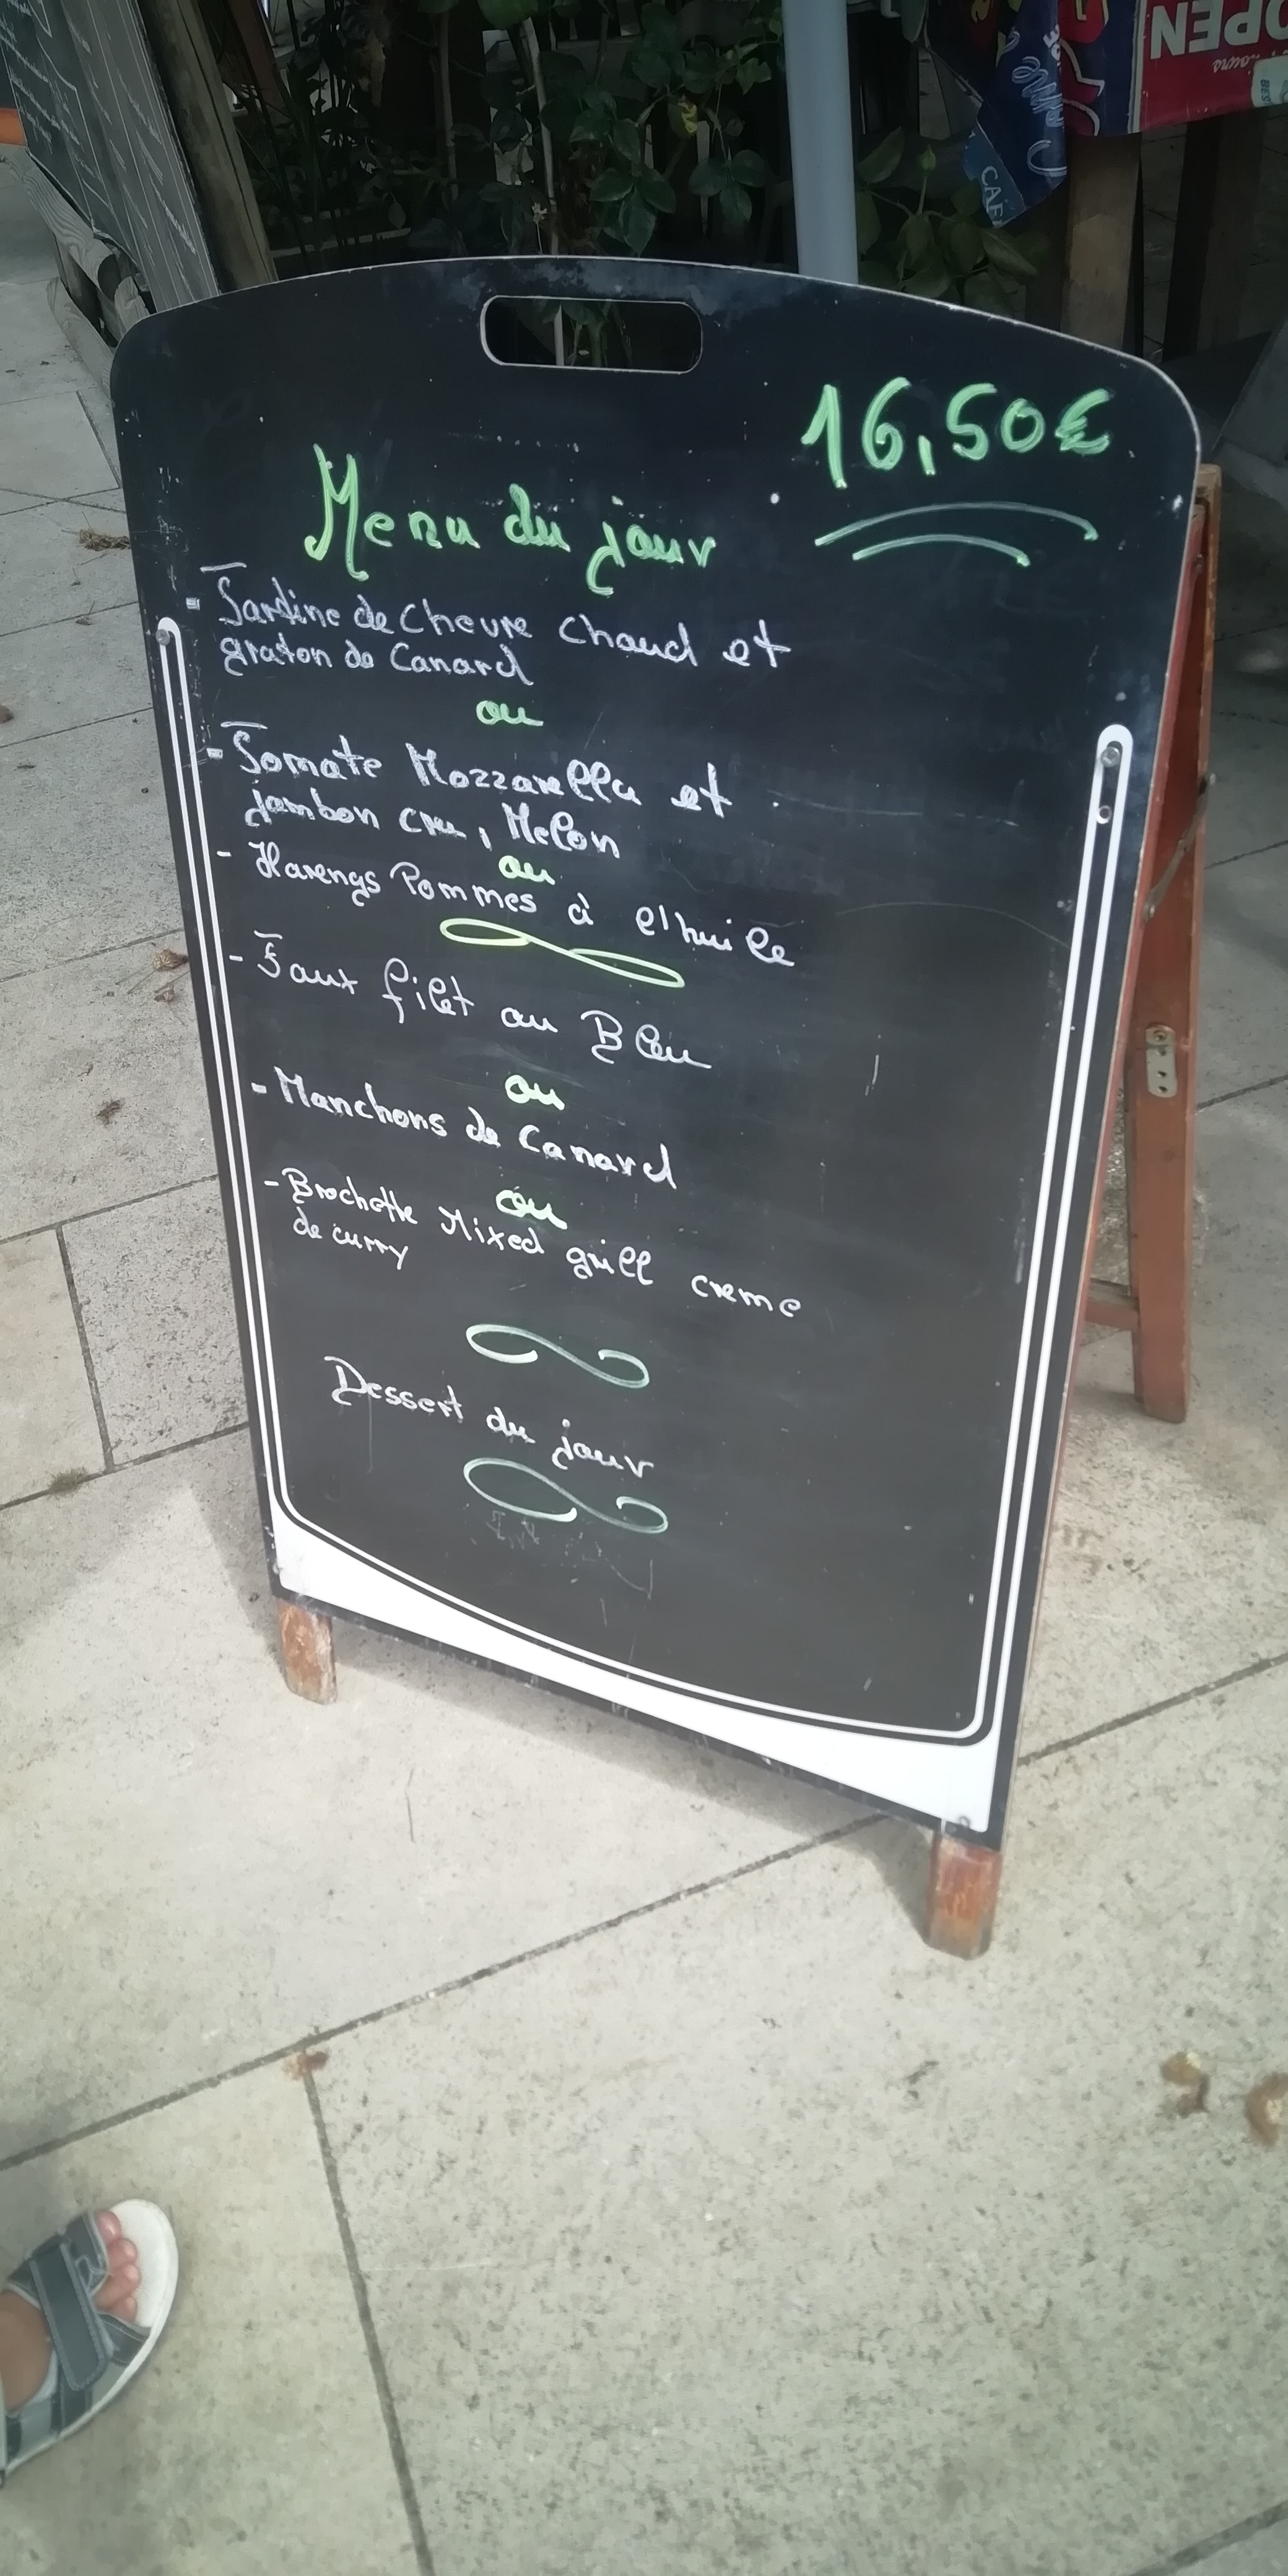 OPEN
CAFE
16,50€
Menu du jour
- Tartine de Chevre Chaud et
graton de Canard
ou
- Tomate Mozzarella et
jambon cru, Melon
ou
- Harengs Pommes à l'huile
- Faux filet au Bleu
ou
- Manchons de Canard
ou
- Brochette Mixed grill creme
de curry
Dessert du jour